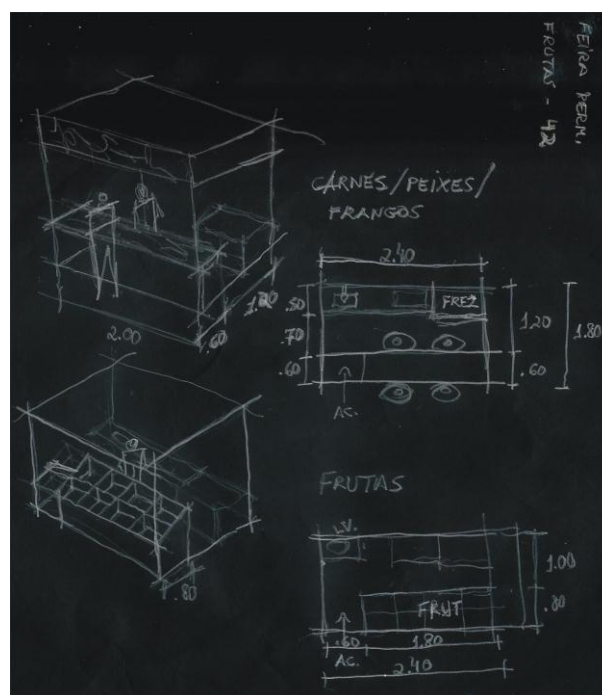 FEIRA PERM.
FRUTAS - 42
CARNES/PEIXES/
FRANGOS
2.40
FREZ
.50
.70
.60
1.20
.60
1.80
AC.
1.20
.60
2.00
.80
FRUTAS
LV.
FRUT
1.00
.80
.60
1.80
AC.
2.40